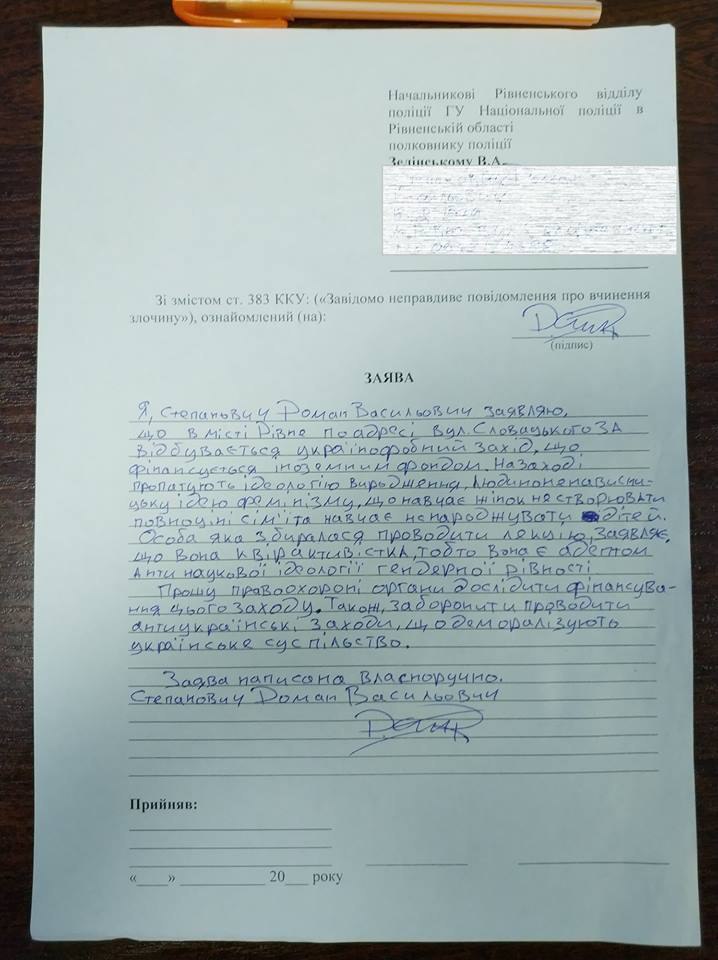 Начальникові Рівненського відділу
поліції ГУ Національної поліції в
Рівненській області
полковнику поліції
Зелінському В.А.
Зі змістом ст. 383 ККУ: («Завідомо неправдиве повідомлення про вчинення
злочину»), ознайомлений (на):
(підпис)
ЗАЯВА
Я, Степанович Роман Васильович заявляю,
що в місті Рівне по адресі вул. Словацького 3А
відбувається українофобний захід, що
фінансується іноземним фондом. На заході
пропагують ідеологію виродження, Людиноненависни-
цьку ідею фемінізму, що навчає жінок не створювати
повноцінні сім'ї та навчає ненароджувати дітей.
Особа яка збиралася проводити лекцію, заявляє,
що вона квір активістка, тобто вона є адептом
Анти наукової ідеології гендерної рівності
Прошу правоохороні органи дослідити фінансува-
ння цього заходу. Також, заборонити проводити
антиукраїнські заходи, що деморалізують
українське суспільство.
Заява написана власноручно.
Степанович Роман Васильович
Прийняв:
«___» ___________ 20___ року